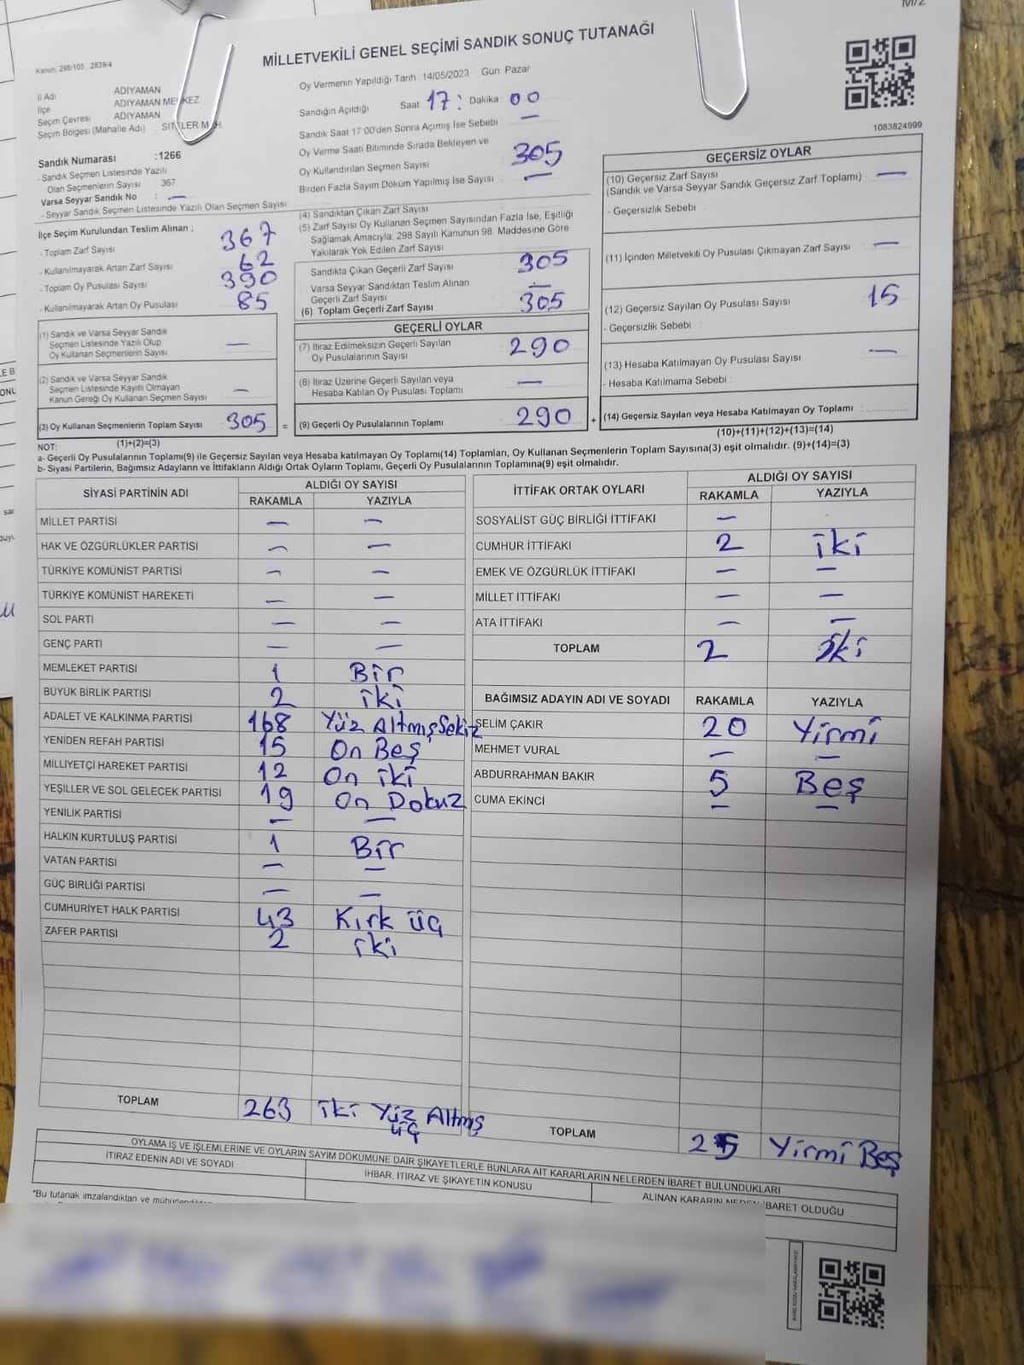 MİLLETVEKİLİ GENEL SEÇİMİ SANDIK SONUÇ TUTANAĞI
İl Adı ADIYAMAN
İlçe ADIYAMAN MERKEZ
Seçim Çevresi ADIYAMAN
Seçim Bölgesi (Mahalle Adı)
Sandık Numarası :1266
- Sandık Seçmen Listesinde Yazılı
Olan Seçmenlerin Sayısı 367
Varsa Seyyar Sandık No : —
- Seyyar Sandık Seçmen Listesinde Yazılı Olan Seçmen Sayısı
Oy Vermenin Yapıldığı Tarih : 14/05/2023 Gün: Pazar
Sandığın Açıldığı Saat 17: Dakika 00
Sandık Saat 17:00'den Sonra Açılmış İse Sebebi —
Oy Verme Saati Bitiminde Sırada Bekleyen ve
Oy Kullandırılan Seçmen Sayısı 305
Birden Fazla Sayım Döküm Yapılmış İse Sayısı —
1083824999
İlçe Seçim Kurulundan Teslim Alınan ;
- Toplam Zarf Sayısı 367
- Kullanılmayarak Artan Zarf Sayısı 62
- Toplam Oy Pusulası Sayısı 390
- Kullanılmayarak Artan Oy Pusulası 85
(1) Sandık ve Varsa Seyyar Sandık
Seçmen Listesinde Yazılı Olup
Oy Kullanan Seçmenlerin Sayısı —
(2) Sandık ve Varsa Seyyar Sandık
Seçmen Listesinde Kayıtlı Olmayan
Kanun Gereği Oy Kullanan Seçmen Sayısı —
(3) Oy Kullanan Seçmenlerin Toplam Sayısı 305 =
(1)+(2)=(3)
(4) Sandıktan Çıkan Zarf Sayısı
(5) Zarf Sayısı Oy Kullanan Seçmen Sayısından Fazla İse, Eşitliği
Sağlamak Amacıyla, 298 Sayılı Kanunun 98. Maddesine Göre
Yakılarak Yok Edilen Zarf Sayısı
Sandıkta Çıkan Geçerli Zarf Sayısı 305
Varsa Seyyar Sandıktan Teslim Alınan
Geçerli Zarf Sayısı —
(6) Toplam Geçerli Zarf Sayısı 305
GEÇERLİ OYLAR
(7) İtiraz Edilmeksizin Geçerli Sayılan
Oy Pusulalarının Sayısı 290
(8) İtiraz Üzerine Geçerli Sayılan veya
Hesaba Katılan Oy Pusulası Toplamı —
(9) Geçerli Oy Pusulalarının Toplamı 290 +
GEÇERSİZ OYLAR
(10) Geçersiz Zarf Sayısı
(Sandık ve Varsa Seyyar Sandık Geçersiz Zarf Toplamı) —
- Geçersizlik Sebebi
(11) İçinden Milletvekili Oy Pusulası Çıkmayan Zarf Sayısı —
(12) Geçersiz Sayılan Oy Pusulası Sayısı 15
- Geçersizlik Sebebi
(13) Hesaba Katılmayan Oy Pusulası Sayısı —
- Hesaba Katılmama Sebebi
(14) Geçersiz Sayılan veya Hesaba Katılmayan Oy Toplamı
(10)+(11)+(12)+(13)=(14)
NOT:
a- Geçerli Oy Pusulalarının Toplamı(9) ile Geçersiz Sayılan veya Hesaba katılmayan Oy Toplamı(14) Toplamları, Oy Kullanan Seçmenlerin Toplam Sayısına(3) eşit olmalıdır. (9)+(14)=(3)
b- Siyasi Partilerin, Bağımsız Adayların ve İttifakların Aldığı Ortak Oyların Toplamı, Geçerli Oy Pusulalarının Toplamına(9) eşit olmalıdır.
SİYASİ PARTİNİN ADI ALDIĞI OY SAYISI
RAKAMLA YAZIYLA
MİLLET PARTİSİ — —
HAK VE ÖZGÜRLÜKLER PARTİSİ — —
TÜRKİYE KOMÜNİST PARTİSİ — —
TÜRKİYE KOMÜNİST HAREKETİ — —
SOL PARTİ — —
GENÇ PARTİ — —
MEMLEKET PARTİSİ 1 Bir
BÜYÜK BİRLİK PARTİSİ 2 iki
ADALET VE KALKINMA PARTİSİ 168 Yüz AltmışSekiz
YENİDEN REFAH PARTİSİ 15 On Beş
MİLLİYETÇİ HAREKET PARTİSİ 12 On iki
YEŞİLLER VE SOL GELECEK PARTİSİ 19 On Dokuz
YENİLİK PARTİSİ — —
HALKIN KURTULUŞ PARTİSİ 1 Bir
VATAN PARTİSİ — —
GÜÇ BİRLİĞİ PARTİSİ — —
CUMHURİYET HALK PARTİSİ 43 Kırk üç
ZAFER PARTİSİ 2 iki
TOPLAM 263 iki Yüz Altmış
üç
İTTİFAK ORTAK OYLARI ALDIĞI OY SAYISI
RAKAMLA YAZIYLA
SOSYALİST GÜÇ BİRLİĞİ İTTİFAKI —
CUMHUR İTTİFAKI 2 iki
EMEK VE ÖZGÜRLÜK İTTİFAKI — —
MİLLET İTTİFAKI — —
ATA İTTİFAKI — —
TOPLAM 2 iki
BAĞIMSIZ ADAYIN ADI VE SOYADI RAKAMLA YAZIYLA
SELİM ÇAKIR 20 Yirmi
MEHMET VURAL — —
ABDURRAHMAN BAKIR 5 Beş
CUMA EKİNCİ — —
TOPLAM 25 Yirmi Beş
OYLAMA İŞ VE İŞLEMLERİNE VE OYLARIN SAYIM DÖKÜMÜNE DAİR ŞİKAYETLERLE BUNLARA AİT KARARLARIN NELERDEN İBARET BULUNDUKLARI
İTİRAZ EDENİN ADI VE SOYADI
İHBAR, İTİRAZ VE ŞİKAYETİN KONUSU
ALINAN KARARIN NEDEN İBARET OLDUĞU
*Bu tutanak imzalandıktan ve